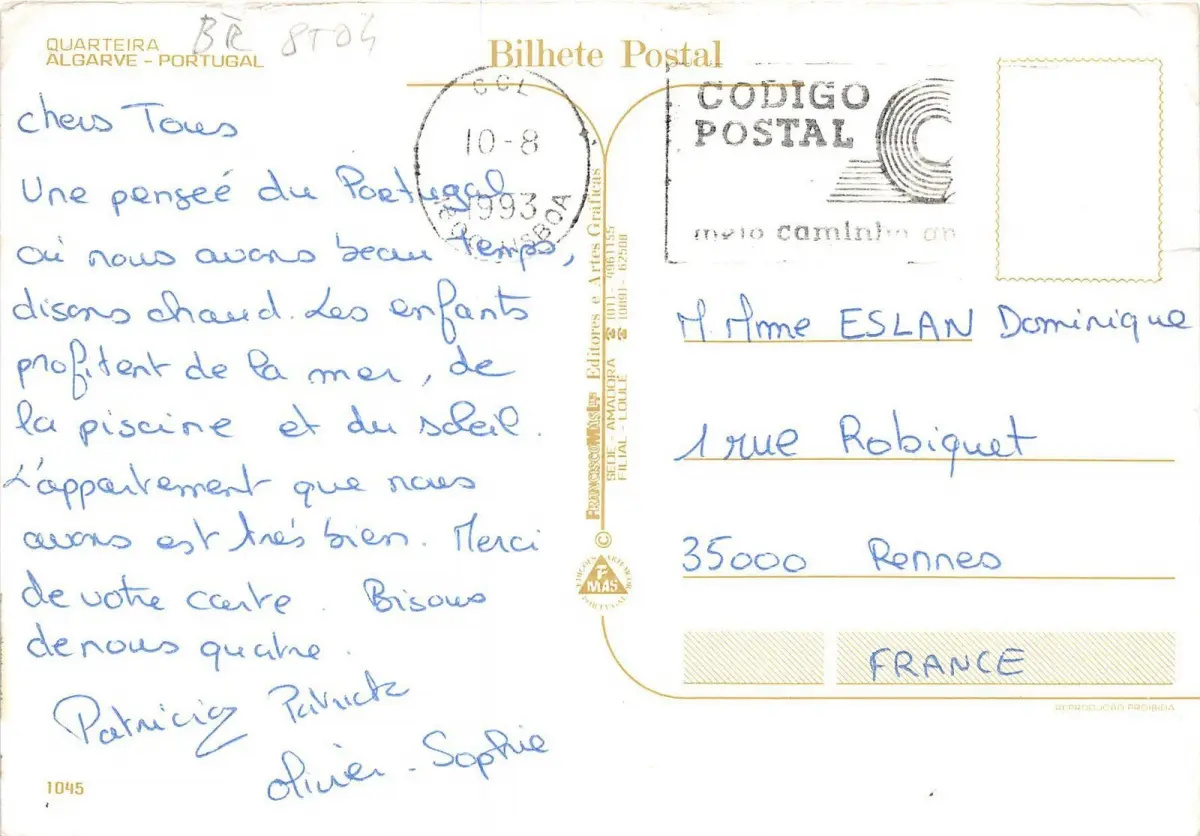 QUARTEIRA
ALGARVE - PORTUGAL
BR 8T04
Bilhete Postal
chers Tous
Une penseé du Portugal
où nous avons beau temps,
disons chaud. Les enfants
profitent de la mer, de
la piscine et du soleil.
L'appartement que nous
avons est très bien. Merci
de votre carte. Bisous
de nous quatre.
Patricia Patrick
Olivier - Sophie
1045
10-8
1993
LISBOA
CODIGO
POSTAL
meio caminho an
FRANCISCO MÁS, Lda Editores e Artes Gráficas
SEDE - AMADORA ☎ (01) - 4961155
FILIAL - LOULÉ ☎ (089) - 62508
©
F
MÁS
PORTUGAL
M. Mme ESLAN Dominique
1 rue Robiquet
35000 Rennes
FRANCE
REPRODUÇÃO PROIBIDA